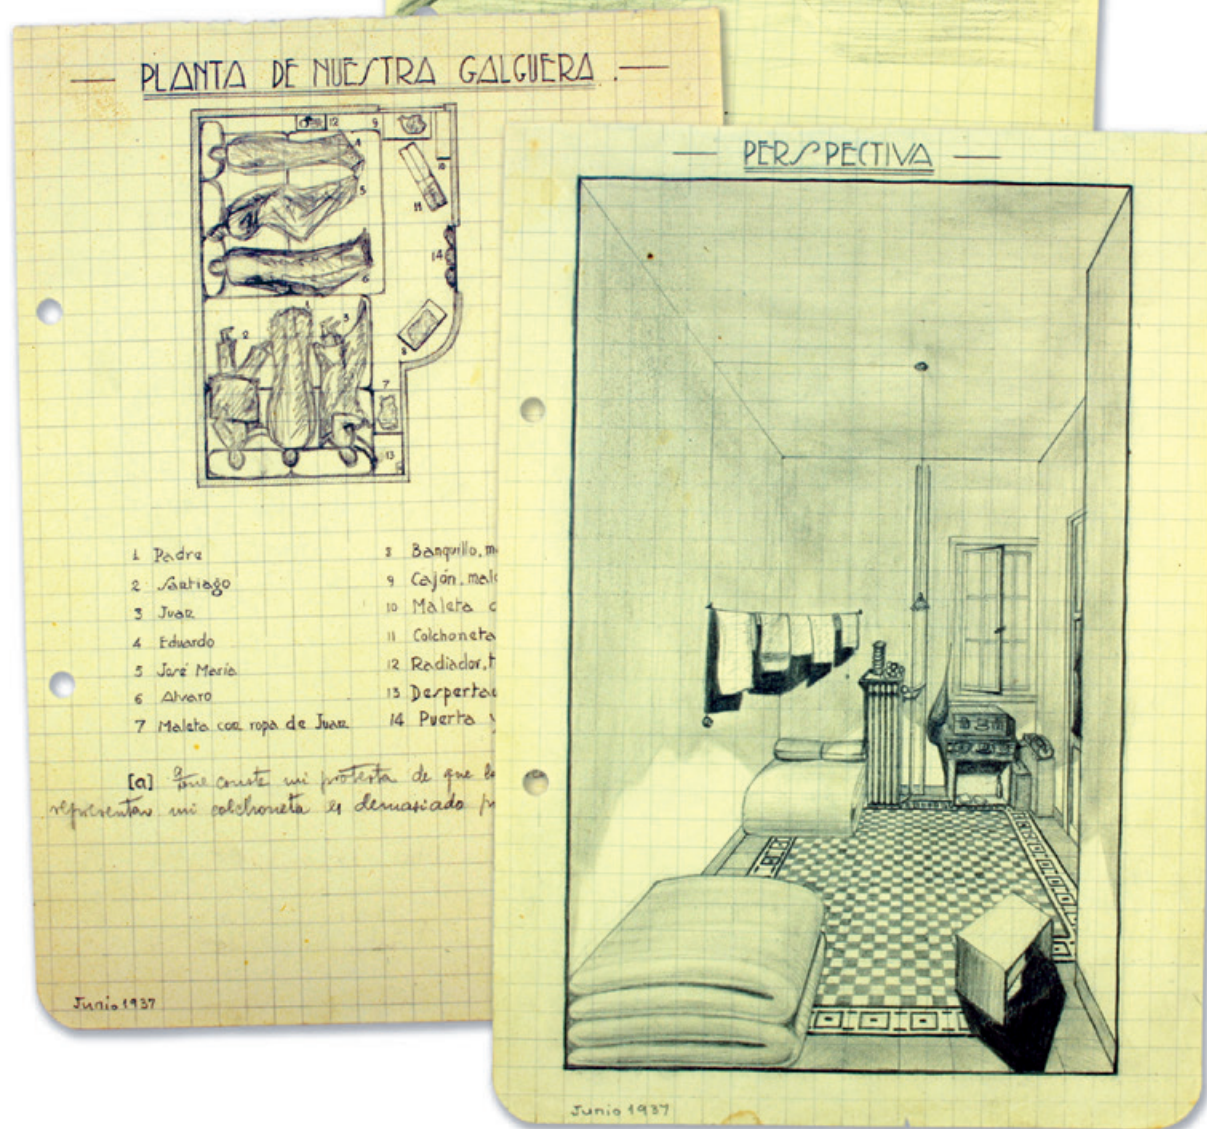 PLANTA DE NUESTRA GALGUERA.
12
9
4
10
5
11
14
6
1
2
3
8
7
13
1 Padre
2 Santiago
3 Juan
4 Eduardo
5 José María
6 Alvaro
7 Maleta con ropa de Juan
8 Banquillo, m
9 Cajón, male
10 Maleta c
11 Colchoneta
12 Radiador, t
13 Despertad
14 Puerta y
[a] Que conste mi protesta de que la
representar mi colchoneta es demasiado p
Junio 1937
PERSPECTIVA
Junio 1937